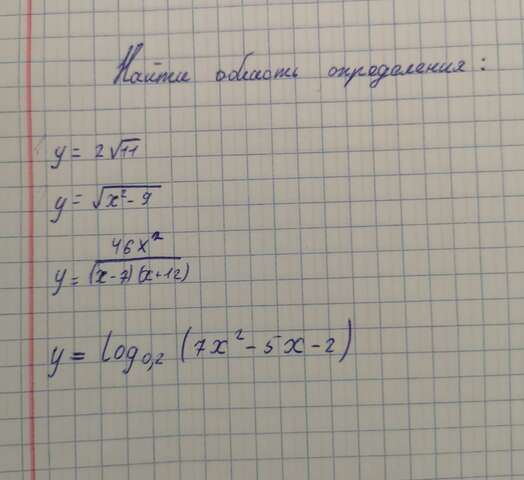 Найти область определения:
y = 2√11
y = √(x² - 9)
y = 46x² / (x-7)(x+12)
y = log₀,₂ (7x² - 5x - 2)